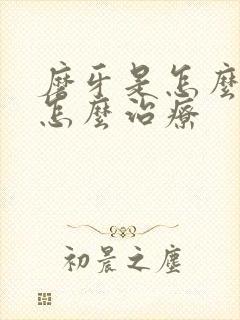 磨牙是怎麼
怎麼治療
初晨之塵